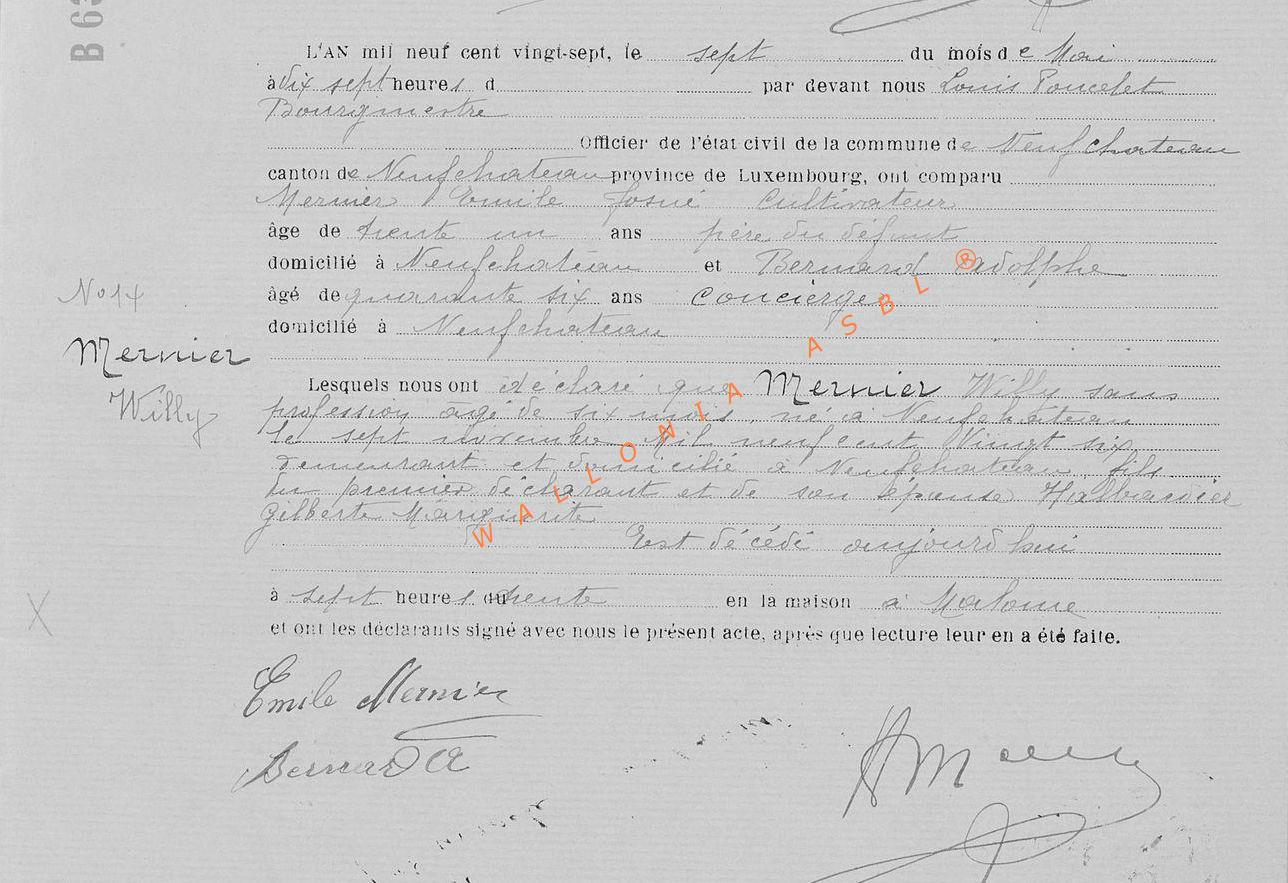 B 63
L'AN mil neuf cent vingt-sept, le sept du mois de Mai
à dix sept heures d par devant nous Louis Poncelet
Bourgmestre
Officier de l'état civil de la commune de Neufchateau
canton de Neufchateau province de Luxembourg, ont comparu
Mernier Emile Josué Cultivateur
âge de trente un ans père du défunt
domicilié à Neufchateau et Bernard Adolphe
âgé de quarante six ans Concierge
domicilié à Neufchateau
N° 14
Mernier
Willy
Lesquels nous ont déclaré que Mernier Willy sans
profession âgé de six mois, né à Neufchateau
le sept novembre Mil neuf cent Vingt six
demeurant et domicilié à Neufchateau fils
du premier déclarant et de son épouse Halbardier
Gilberte Marguerite
Est décédé aujourd'hui
à sept heures trente en la maison à
et ont les déclarants signé avec nous le présent acte, après que lecture leur en a été faite.
Emile Mernier
Bernard A
WALLONIA ASBL ®